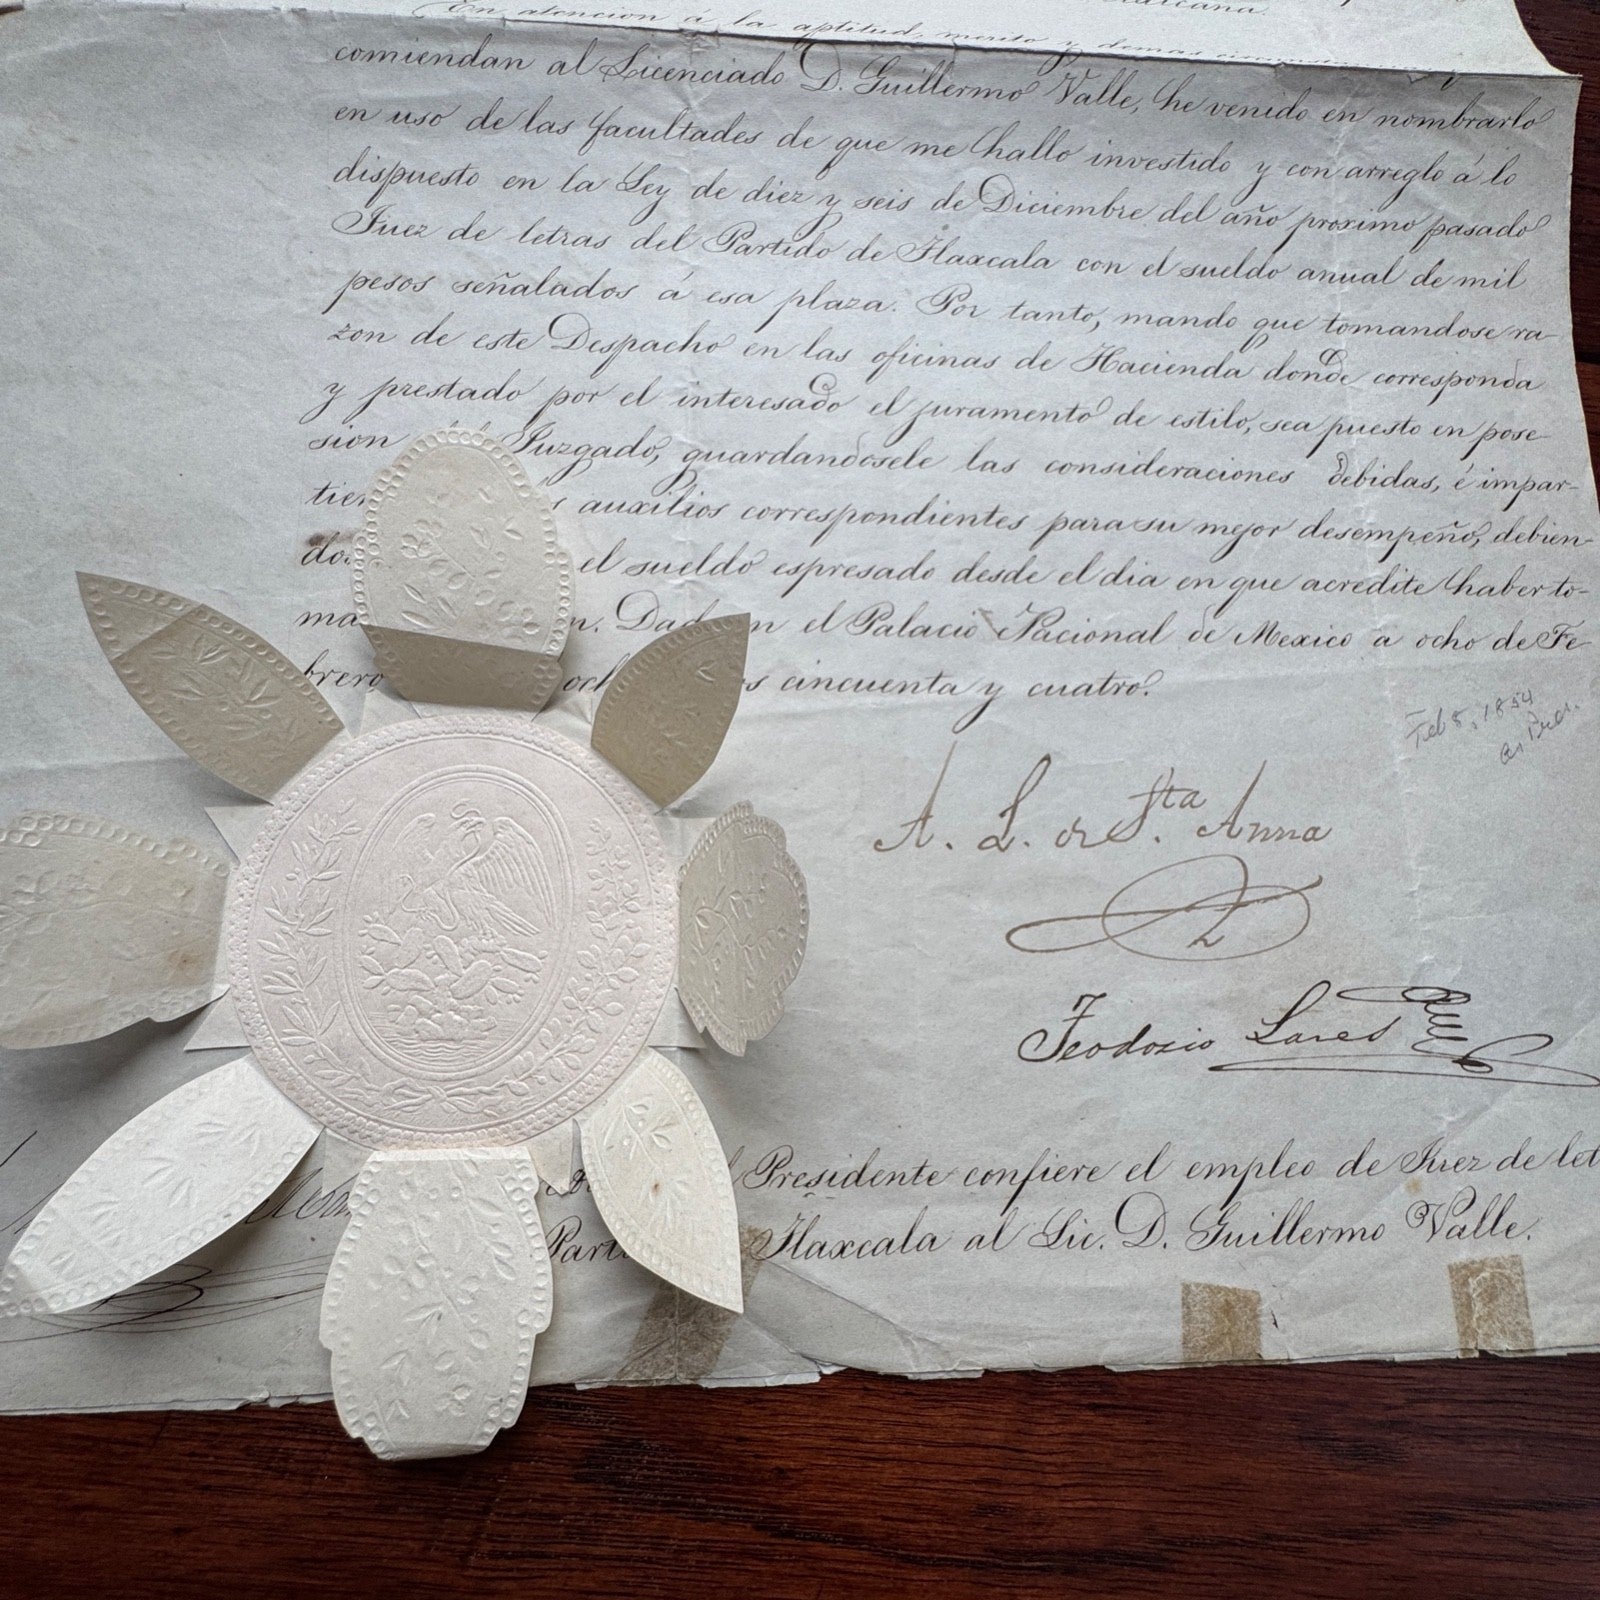 En atencion á la aptitud, merito y demas
comiendan al Licenciado D. Guillermo Valle, he venido en nombrarlo
en uso de las facultades de que me hallo investido y con arreglo á lo
dispuesto en la Ley de diez y seis de Diciembre del año proximo pasado
Juez de letras del Partido de Tlaxcala con el sueldo anual de mil
pesos señalados á esa plaza. Por tanto, mando que tomandose ra-
zon de este Despacho en las oficinas de Hacienda donde corresponda
y prestado por el interesado el juramento de estilo, sea puesto en pose-
sion Juzgado, guardandosele las consideraciones debidas, é impar-
tien s auxilios correspondientes para su mejor desempeño, debien-
do el sueldo espresado desde el dia en que acredite haber to-
ma n. Dad n el Palacio Nacional de Mexico a ocho de Fe
brero och s cincuenta y cuatro.
Feb 8, 1854
A. L. de Sta. Anna
Teodosio Lares
l Presidente confiere el empleo de Juez de let
Part Tlaxcala al Lic. D. Guillermo Valle.